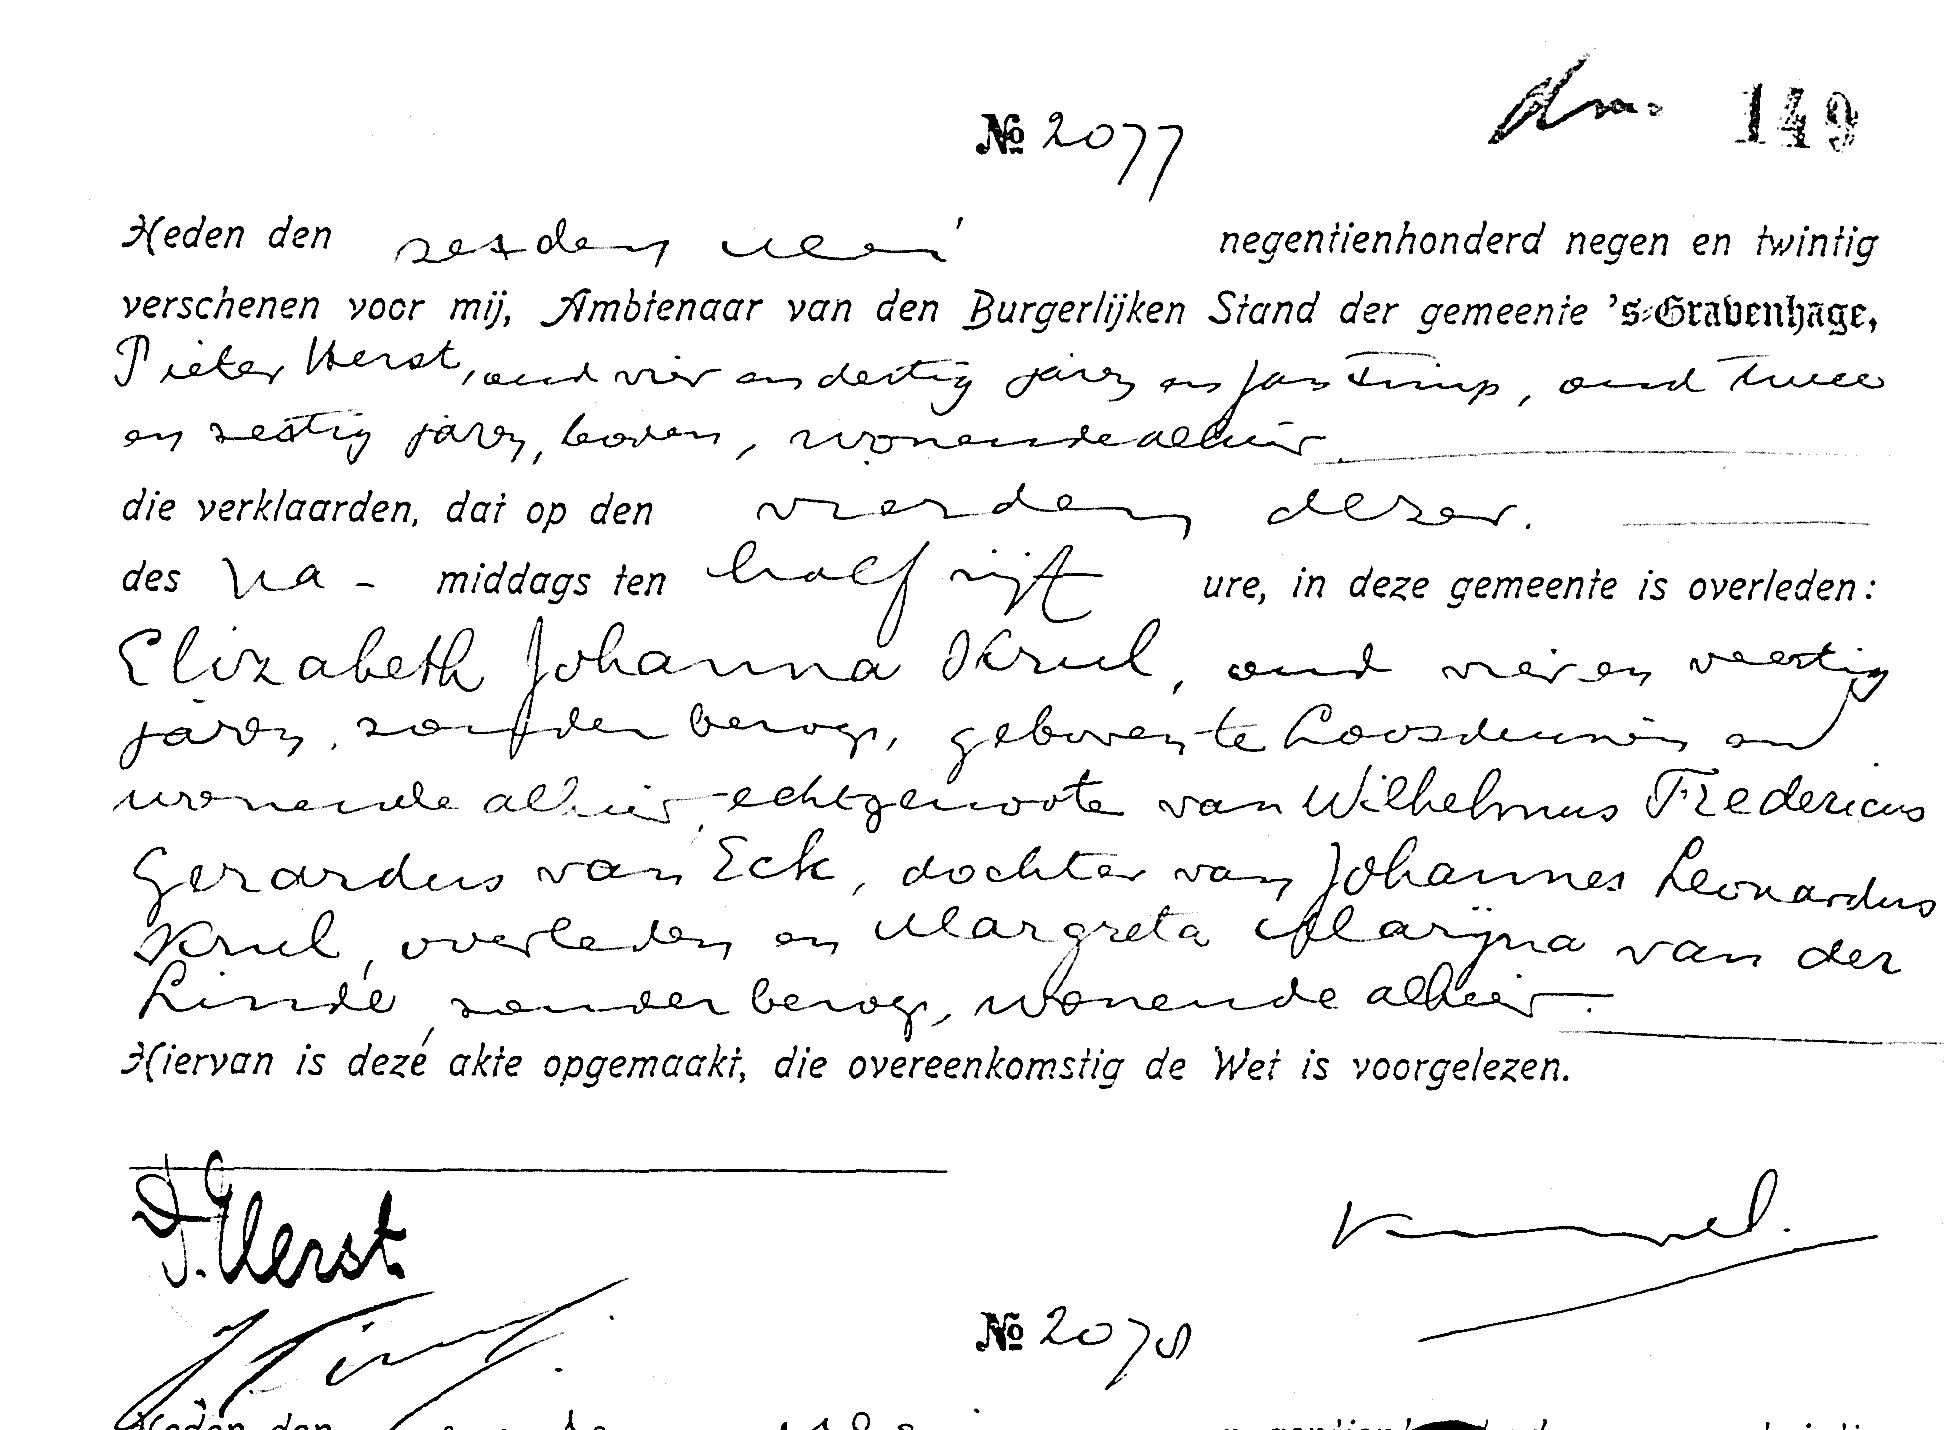 dm. 149
№ 2077
Heden den zesden mei negentienhonderd negen en twintig
verschenen voor mij, Ambtenaar van den Burgerlijken Stand der gemeente 's-Gravenhage,
Pieter Verst, oud vier en dertig jaren en Jan Timp, oud twee
en zestig jaren, boden, wonende alhier.
die verklaarden, dat op den vierden dezer.
des na- middags ten half vijf ure, in deze gemeente is overleden:
Elizabeth Johanna Krul, oud vier en veertig
jaren, zonder beroep, geboren te Loosduinen en
wonende alhier, echtgenoote van Wilhelmus Fredericus
Gerardus van Eck, dochter van Johannes Leonardus
Krul, overleden en Margreta Marijna van der
Linde, zonder beroep, wonende alhier.
Hiervan is deze akte opgemaakt, die overeenkomstig de Wet is voorgelezen.
P. Verst.
J. Timp.
№ 2078
Heden den